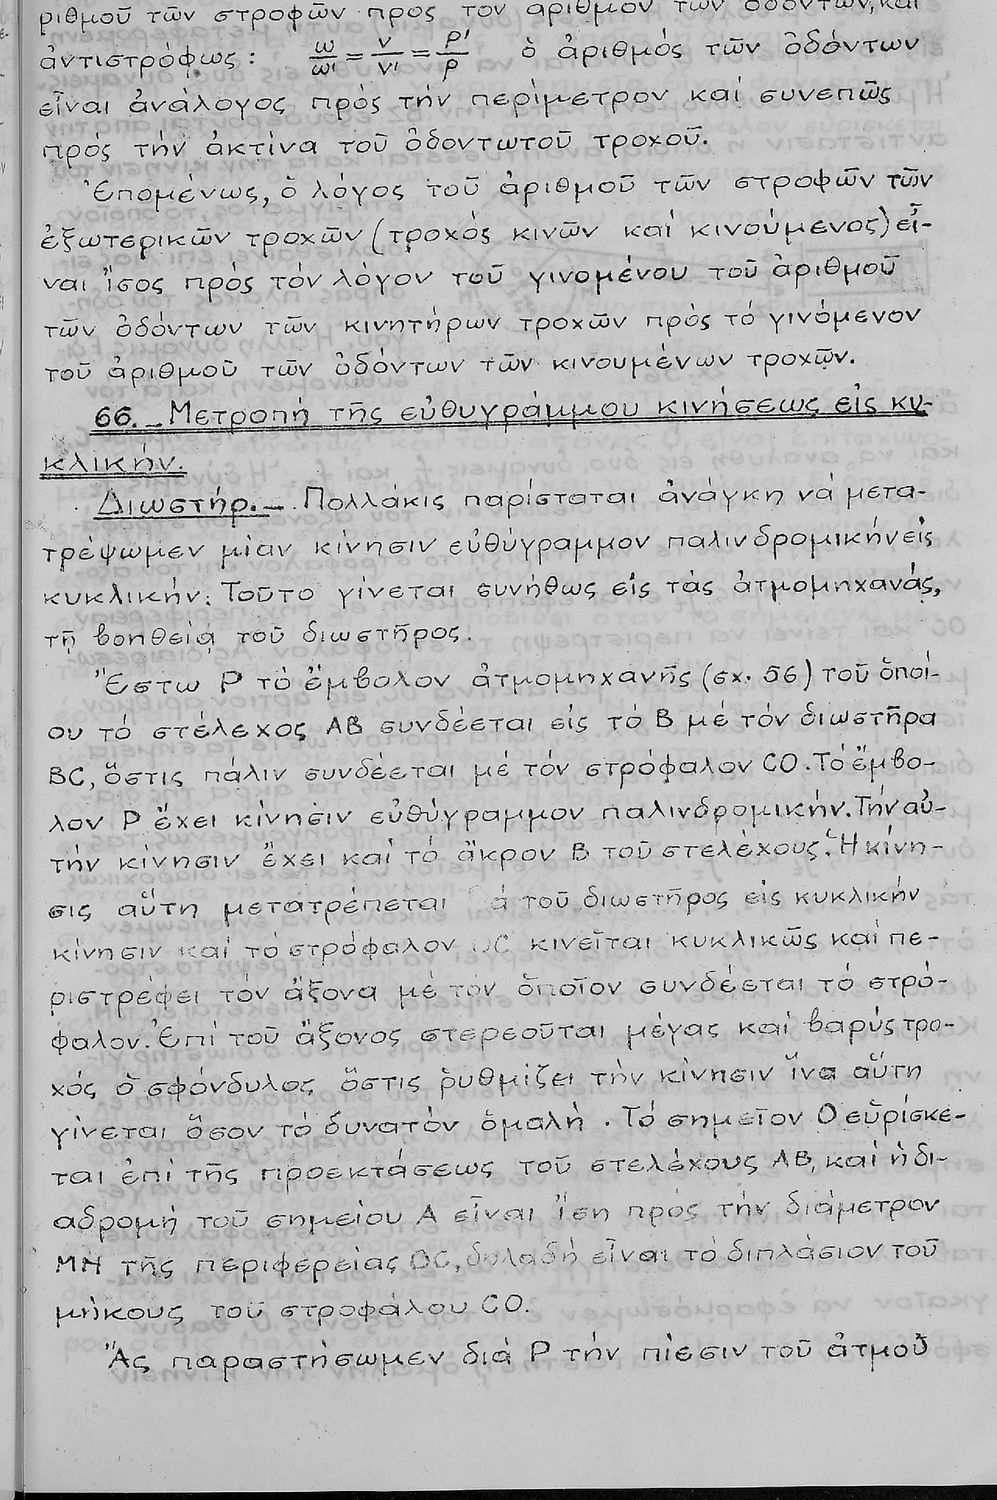 ριθμοῦ τῶν στροφῶν πρός τόν ἀριθμόν τῶν ὀδόντων, καί
ἀντιστρόφως : ω/ω' = ν/ν' = ρ'/ρ ὁ ἀριθμός τῶν ὀδόντων
εἶναι ἀνάλογος πρός τήν περίμετρον καί συνεπῶς
πρός τήν ἀκτίνα τοῦ ὀδοντωτοῦ τροχοῦ.
Ἑπομένως, ὁ λόγος τοῦ ἀριθμοῦ τῶν στροφῶν τῶν
ἐξωτερικῶν τροχῶν (τροχός κινῶν καί κινούμενος) εἶ-
ναι ἴσος πρός τόν λόγον τοῦ γινομένου τοῦ ἀριθμοῦ
τῶν ὀδόντων τῶν κινητήρων τροχῶν πρός τό γινόμενον
τοῦ ἀριθμοῦ τῶν ὀδόντων τῶν κινουμένων τροχῶν.
66.- Μετροπή τῆς εὐθυγράμμου κινήσεως εἰς κυ-
κλικήν.
Διωστήρ.- Πολλάκις παρίσταται ἀνάγκη νά μετα-
τρέψωμεν μίαν κίνησιν εὐθύγραμμον παλινδρομικήν εἰς
κυκλικήν. Τοῦτο γίνεται συνήθως εἰς τάς ἀτμομηχανάς,
τῇ βοηθείᾳ τοῦ διωστῆρος.
Ἔστω Ρ τό ἔμβολον ἀτμομηχανῆς (σχ. 56) τοῦ ὁποί-
ου τό στέλεχος ΑΒ συνδέεται εἰς τό Β μέ τόν διωστῆρα
BC, ὅστις πάλιν συνδέεται μέ τόν στρόφαλον CO. Τό ἔμβο-
λον Ρ ἔχει κίνησιν εὐθύγραμμον παλινδρομικήν. Τήν αὐ-
τήν κίνησιν ἔχει καί τό ἄκρον Β τοῦ στελέχους. Ἡ κίνη-
σις αὕτη μετατρέπεται ά τοῦ διωστῆρος εἰς κυκλικήν
κίνησιν καί τό στρόφαλον OC κινεῖται κυκλικῶς καί πε-
ριστρέφει τόν ἄξονα μέ τόν ὁποῖον συνδέεται τό στρό-
φαλον. Ἐπί τοῦ ἄξονος στερεοῦται μέγας καί βαρύς τρο-
χός ὁ σφόνδυλος ὅστις ῥυθμίζει τήν κίνησιν ἵνα αὕτη
γίνεται ὅσον τό δυνατόν ὁμαλή. Τό σημεῖον Ο εὑρίσκε-
ται ἐπί τῆς προεκτάσεως τοῦ στελέχους ΑΒ, καί ἡ δι-
αδρομή τοῦ σημείου Α εἶναι ἴση πρός τήν διάμετρον
ΜΝ τῆς περιφερείας OC, δυλαδή εἶναι τό διπλάσιον τοῦ
μήκους τοῦ στροφάλου CO.
Ἄς παραστήσωμεν διά Ρ τήν πίεσιν τοῦ ἀτμοῦ